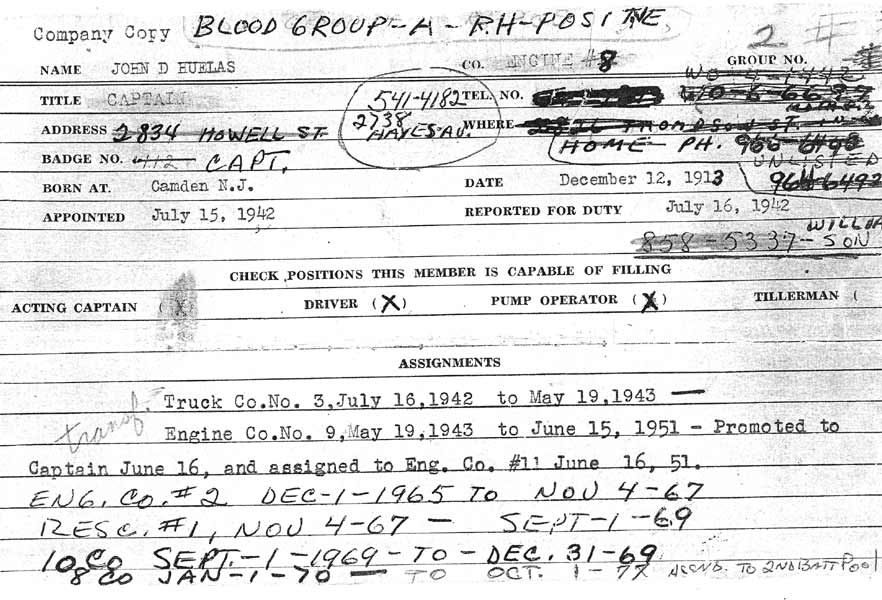 Company Copy BLOOD GROUP-A-RH-POSITIVE,
2 #
NAME JOHN D HUELAS CO. ENGINE #8 GROUP NO.
WO-4-1442
TITLE CAPTAIN 541-4182 TEL. NO. WO-6-6687
2738
ADDRESS 2834 HOWELL ST HAYES AV. WHERE THOMPSON ST.
HOME PH. 966-6493
BADGE NO. 412 CAPT. UNLISTED
BORN AT. Camden N.J. DATE December 12, 1913 964-6492
APPOINTED July 15, 1942 REPORTED FOR DUTY July 16, 1942
858-5337-SON
CHECK POSITIONS THIS MEMBER IS CAPABLE OF FILLING
ACTING CAPTAIN ( X ) DRIVER (X) PUMP OPERATOR (X) TILLERMAN (
ASSIGNMENTS
transf. Truck Co.No. 3,July 16,1942 to May 19,1943 —
Engine Co.No. 9,May 19,1943 to June 15, 1951 - Promoted to
Captain June 16, and assigned to Eng. Co. #11 June 16, 51.
ENG. CO. #2 DEC-1-1965 TO NOV 4-67
RESC. #1, NOV 4-67 — SEPT-1-69
10 CO SEPT.-1-1969-TO-DEC. 31-69
8 CO JAN-1-70 — TO OCT. 1-77 ASGND. TO 2ND BATT POOL